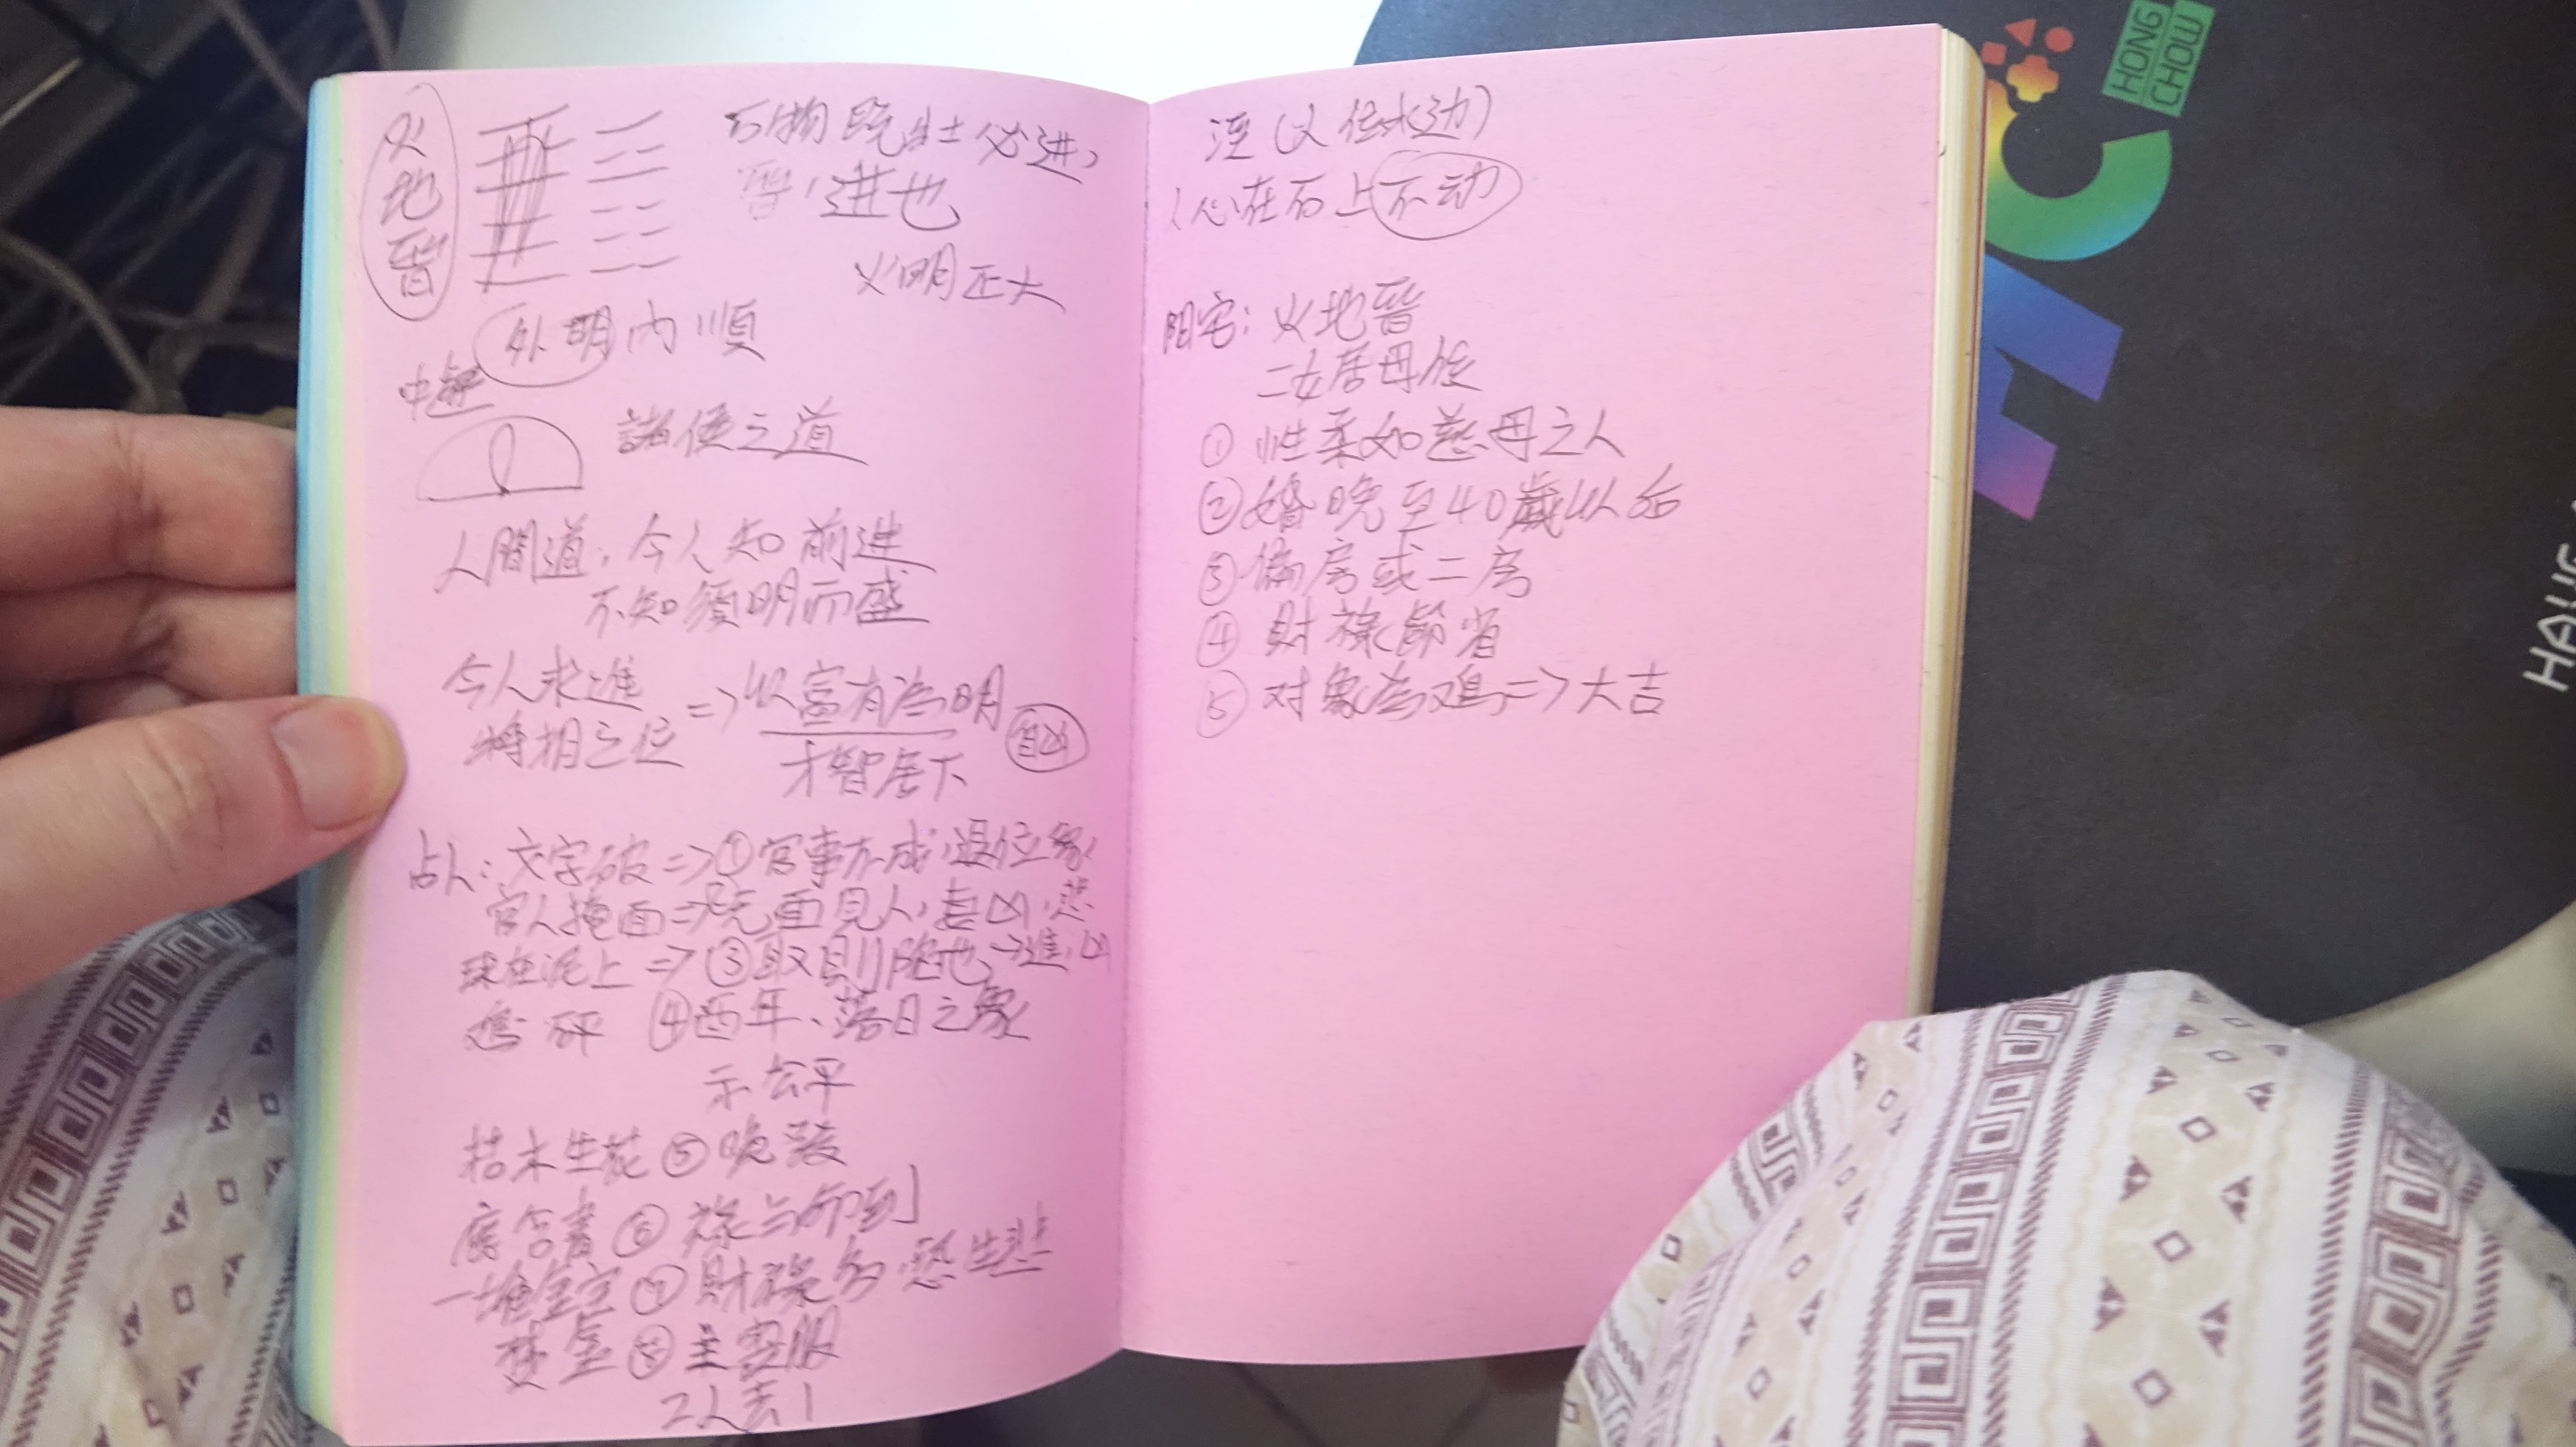 火地晉
万物既壮必进,
晋,进也
火明正大
外明内順
諸侯之道
人間道,今人知前进
不知須明而盛
今人求進
將相之位 => 以富有為明
才智居下
占人:文字破 => ①官事亦成,退位象
官人掩面 => ②无面見人,喜凶,悲
球在泥上 => ③取則陷也→進凶
鸡 砰 ④酉年、落日之象
示公平
枯木生花 ⑤晚發
鹿含書 ⑥祿与命到
一堆金宝 ⑦財祿多,恐生悲
⑧主喪服
2人丟1
涇(又位水边)
(心在石上不动
阳宅:火地晉
二女居母位
①性柔如慈母之人
②婚晚至40歲以后
③偏房或二房
④財祿節省
⑤对象為鸡=>大吉
HC
HONG
CHOW